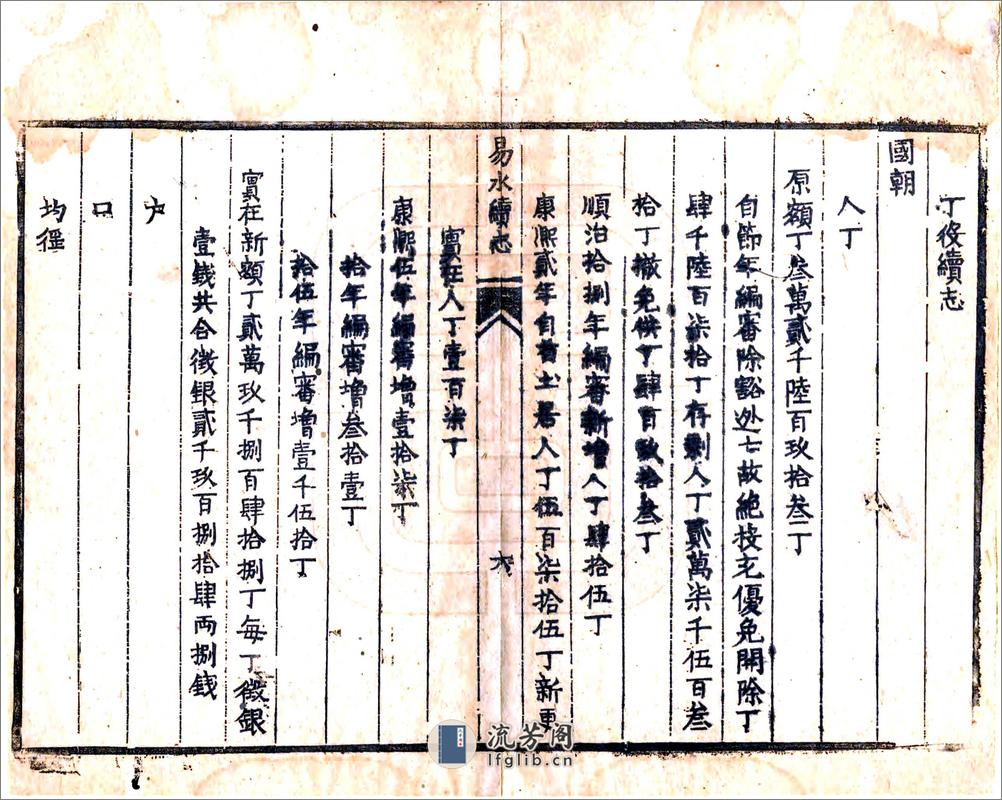 丁役續志
國朝
人丁
原額丁叁萬貳千陸百玖拾叁丁
自節年編審除豁逃亡故絶投充優免開除丁
肆千陸百柒拾丁存剩人丁貳萬柒千伍百叁
拾丁撤免供丁肆百玖拾叁丁
順治拾捌年編審新增人丁肆拾伍丁
康熙貳年自首土著人丁伍百柒拾伍丁新更
易水續志
六
實在人丁壹百柒丁
康熙伍年編審增壹拾柒丁
拾年編審增叁拾壹丁
拾伍年編審增壹千伍拾丁
實在新額丁貳萬玖千捌百肆拾捌丁每丁徵銀
壹錢共合徵銀貳千玖百捌拾肆両捌錢
户
口
均徭
流芳阁
lfglib.cn